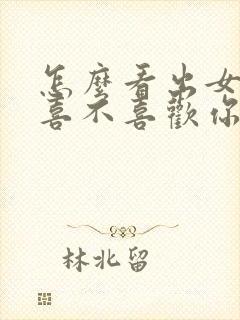 怎麼看出女
喜不喜歡你
林北留